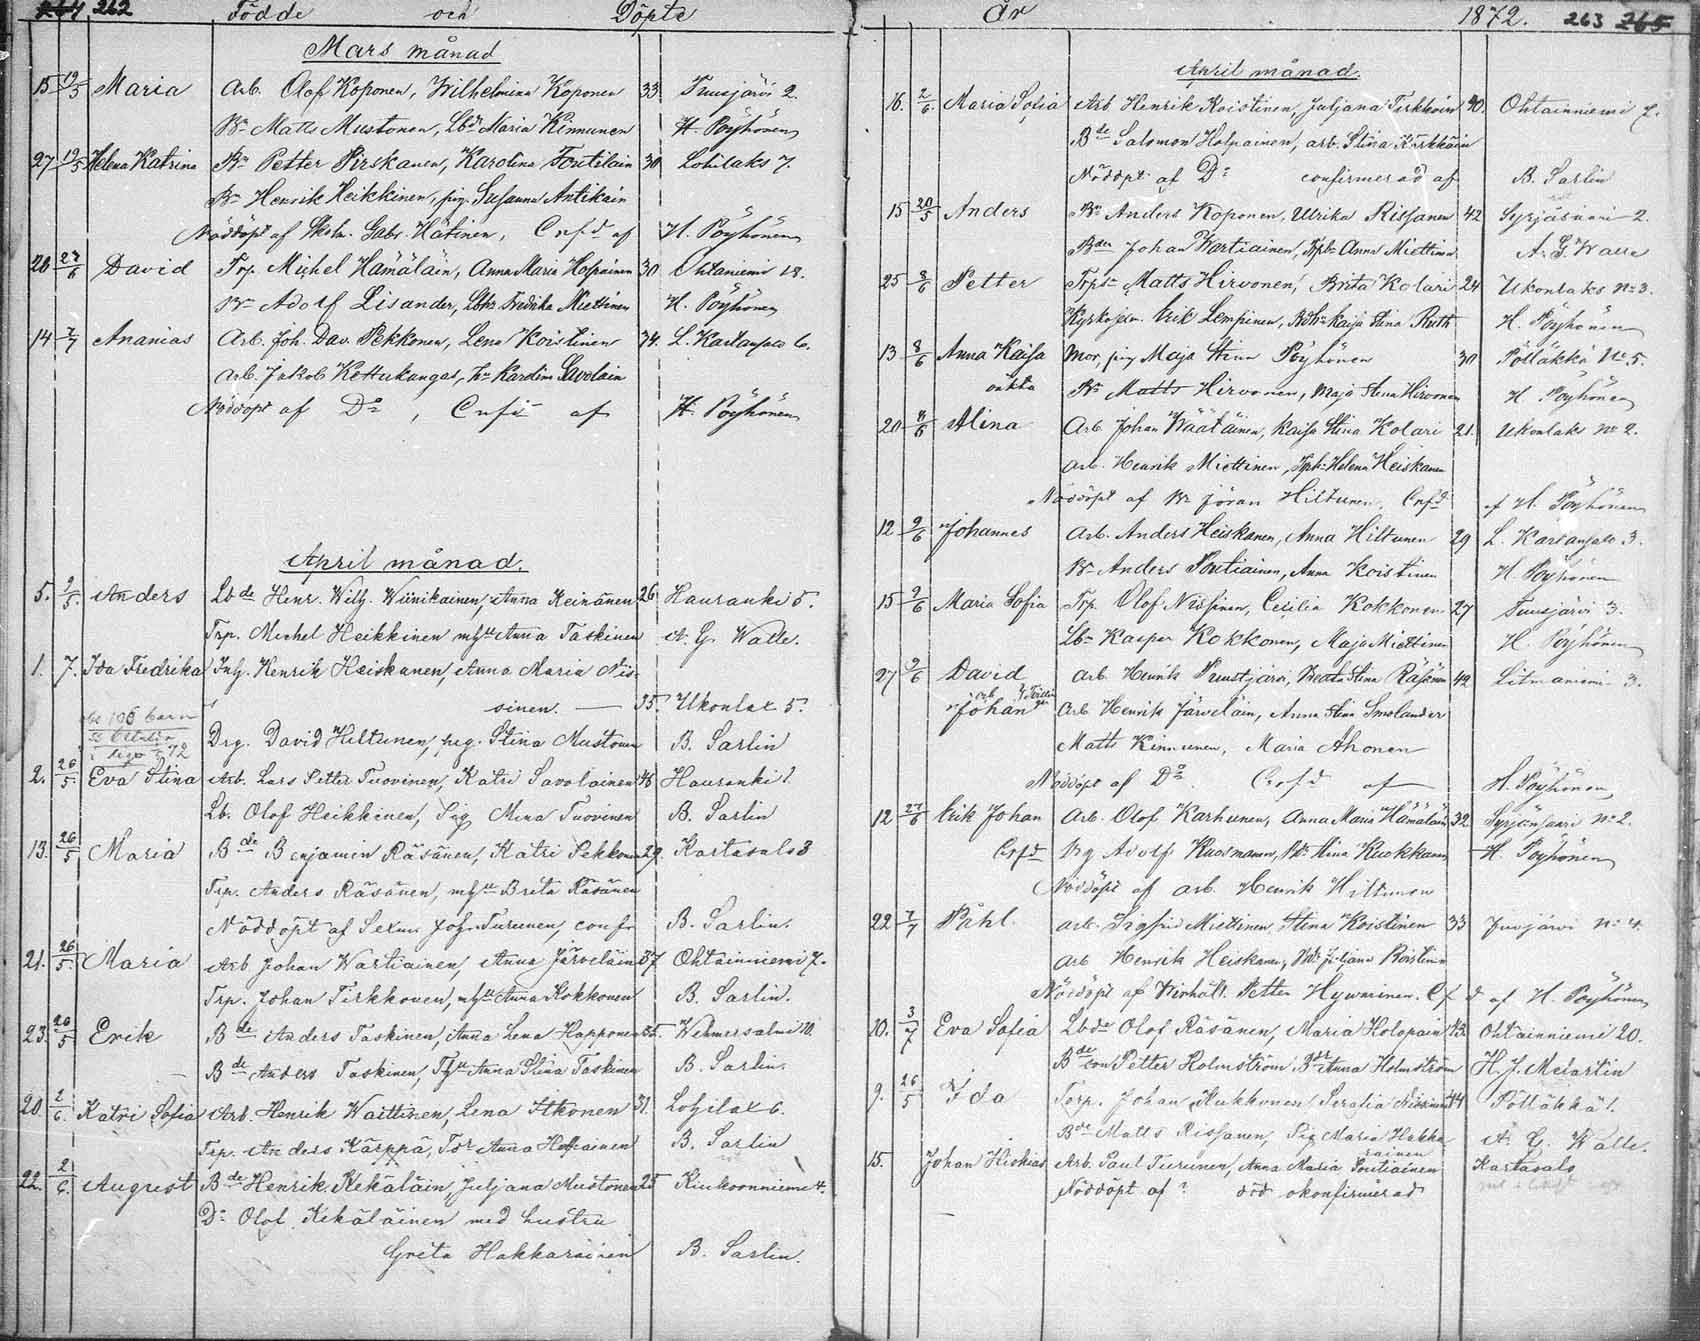 262 Födde och Döpte
Mars månad
15 19/5 Maria Arb. Olof Koponen, Wilhelmina Koponen 33 Tuusjärvi 2.
Bn Matts Mustonen, Lbdr Maria Kinnunen H. Pöyhönen
27 19/5 Helena Katrina Bn Petter Pirskanen, Karolina Tontilain 30 Lohilaks 7.
Bn Henrik Heikkinen, pig. Susanna Antikain
Nöddöpt af Skolm. Gabr. Hätinen, Cnfd af H. Pöyhönen
20 27/6 David Trp. Michel Hämäläin, Anna Maria Holpainen 30 Ohtaniemi 18.
Bn Adolf Lisander, Fredrika Miettinen H. Pöyhönen
14 7/7 Ananias Arb. Joh. Dav. Pekkonen, Lena Koistinen 34. L. Kartansalo 6.
Arb. Jakob Kettukangas, Karolina Savolain
Nöddöpt af Do, Cnfd af H. Pöyhönen
April månad.
5. 9/5. Anders Lbde Henr. Wilh. Wiinikainen, Anna Keinänen 26. Hauranki 5.
Trp. Michel Heikkinen, Anna Taskinen A. G. Walle.
1. 7. Ida Fredrika Inh. Henrik Heiskanen, Anna Maria Nis-
sinen. — 35. Ukonlax 5.
Drg. David Hiltunen, pig. Stina Mustonen B. Sarlin
2. 26/5. Eva Stina Arb. Lars Petter Tuovinen, Katri Savolainen 46 Hauranki 1
Lb. Olof Heikkinen, Pig Mina Tuovinen B. Sarlin
13. 26/5 Maria Bde Benjamin Räsänen, Katri Pekkonen 29. Kartasalo 3
Trp. Anders Räsänen, Brita Räsänen
Nöddöpt af Turunen, confr B. Sarlin.
21. 26/5. Maria Arb Johan Wartiainen, Anna Järveläin 37 Ohtainniemi 7.
Trp. Johan Tirkkonen, Anna Kokkonen B. Sarlin.
23. 26/5 Erik Bde Anders Taskinen, Anna Lena Happonen 35. Wehmersalmi 10
Bde Anders Taskinen, Anna Stina Taskinen B. Sarlin.
20. 2/6. Katri Sofia Arb. Henrik Waittinen, Lena Itkonen 31. Lohilax 6.
Trp. Anders Kärppä, Anna B. Sarlin
22. 2/6. August Bde Henrik Kekäläin, Juljana Mustonen 25 Kiukoonniemi 4.
Do Olof Kekäläinen med hustru
Greta Hakkarainen B. Sarlin.
År 1872. 263
April månad.
16. 2/6. Maria Sofia Arb Henrik Koistinen, Juljana Tirkkoin 40. Ohtainniemi 7.
Bde Salomon Holpainen, arb. Stina Kärkkäin
Nöddöpt af Do confirmerad af B. Sarlin
15 20/5 Anders Bn Anders Koponen, Ulrika Rissanen 42 Syrjäsaari 2.
Bdn Johan Wartiainen, Anna Miettinen A. G. Walle
25 8/6 Petter Trps- Matts Hirvonen, Brita Kolari 24 Ukonlaks No 3.
Erik Lempinen, Kaisa Stina Ruth H. Pöyhönen
13 8/6 Anna Kaisa Mor, pig Maja Stina Pöyhönen 30 Pölläkkä No 5.
oäkta Bn Matts Hirvonen, Maja Stina Hirvonen H. Pöyhönen
20 8/6 Alina Arb Johan Wäätäinen, Kaisa Stina Kolari 21. Ukonlaks No 2.
Arb. Henrik Miettinen, Helena Heiskanen
Nöddöpt af Bn Jöran Hiltunen, Cnfd af H. Pöyhönen
12 9/6 Johannes Arb. Anders Heiskanen, Anna Hiltunen 29 L. Kartansalo 3.
Bn Anders Pontiainen, Anna Koistinen H. Pöyhönen
15 9/6 Maria Sofia Trp. Olof Nissinen, Cecilia Kokkonen 27 Tuusjärvi 3.
Lbn Kasper Kokkonen, Maja Miettinen H. Pöyhönen
27 9/6 David Arb. Henrik Stina Räsänen 42 Litmaniemi 3.
Johan Arb Henrik Järveläin, Anna Stina Smolander
Matts Kinnunen, Maria Ahonen
Nöddöpt af Do Cnfd af H. Pöyhönen
12 27/6 Erik Johan Arb. Olof Karhunen, Anna Maria Hämäläin 32 Syrjänsaari No 2.
Cnfd Adolf Kuosmanen, Stina Kuokkanen H. Pöyhönen
Nöddöpt af arb. Henrik Hiltunen
22 7/7 Pihl. Arb. Sigfrid Miettinen, Stina Koistinen 33 Juojärvi No 4.
Arb Henrik Heiskanen, Juljana Koistinen
Nöddöpt af Petter Hyvvninen. Cfd af H. Pöyhönen
10. 3/7 Eva Sofia Lbde Olof Räsänen, Maria Holopain 43. Ohtainniemi 20.
Bdeson Petter Holmström, Anna Holmström H. J. Melartin
9. 26/5 Ida Torp. Johan Kukkonen, Serafia Nissinen 44 Pölläkkä 1.
Bde Matts Rissanen, Pig Maria Hakka-
rainen A. G. Walle.
15. Johan Hiskias Arb. Paul Turunen, Anna Maria Pontiainen Kartasalo
Nöddöpt af? död okonfirmerad